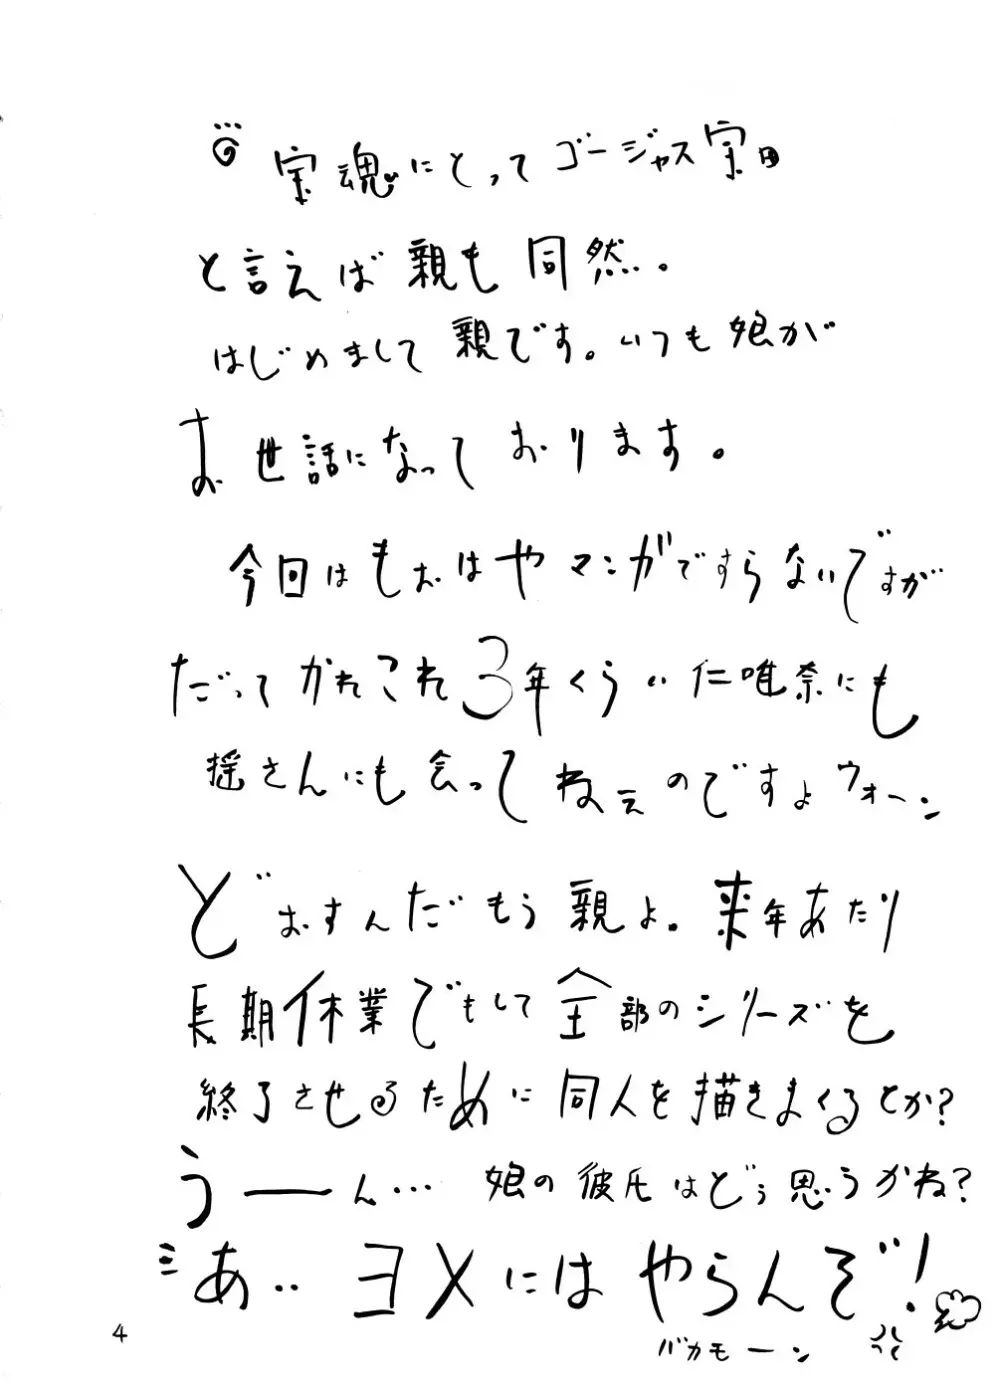 宝魂にとってゴージャス宝田
と言えば親も同然。
はじめまして親です。いつも娘が
お世話になっております。
今回はもおはやマンガですらないですが
だってかれこれ3年くらい仁唯奈にも
揺さんにも会ってねえのですよウォーン
どおすんだもう親よ。来年あたり
長期休業でもして全部のシリーズを
終了させるために同人を描きまくるとか?
うーーん… 娘の彼氏はどう思うかね?
あ‥ヨメにはやらんぞ!
バカモーン
4